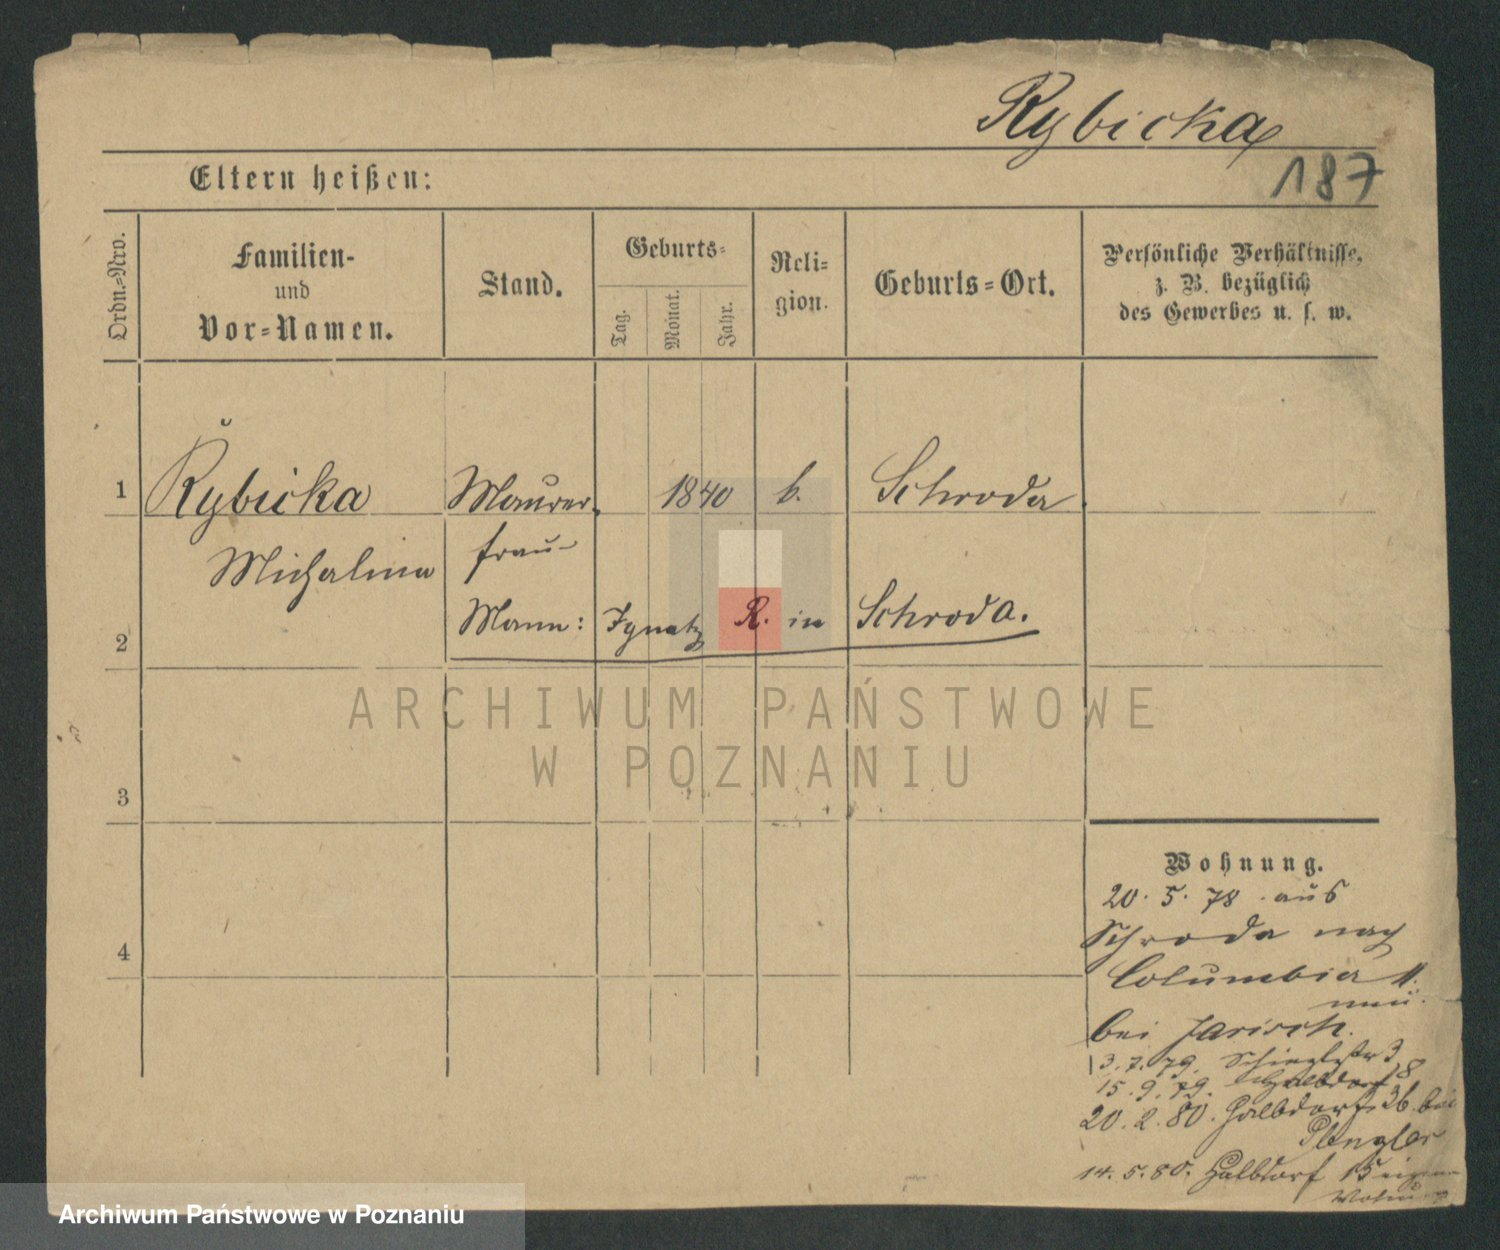 Rybicka
187
Eltern heißen:
Ordn.-Nro.
Familien-
und
Vor-Namen.
Stand.
Geburts-
Tag.
Monat.
Jahr.
Reli-
gion.
Geburts-Ort.
Persönliche Verhältnisse,
z. B. bezüglich
des Gewerbes u. s. w.
1 Rybicka Maurer 1840 k. Schroda
Michalina frau
2 Mann: Ignatz R. in Schroda.
ARCHIWUM PAŃSTWOWE
W POZNANIU
3
4
Wohnung.
20. 5. 78 aus
Schroda nach
Columbia
bei Jarisch.
3. 7. 79. 3
15. 9. 79. Halbdorf 18
20. 2. 80. Halbdorf 36 bei
Plengler
14. 5. 80. Halbdorf 15 eigene
Wohnung
Archiwum Państwowe w Poznaniu